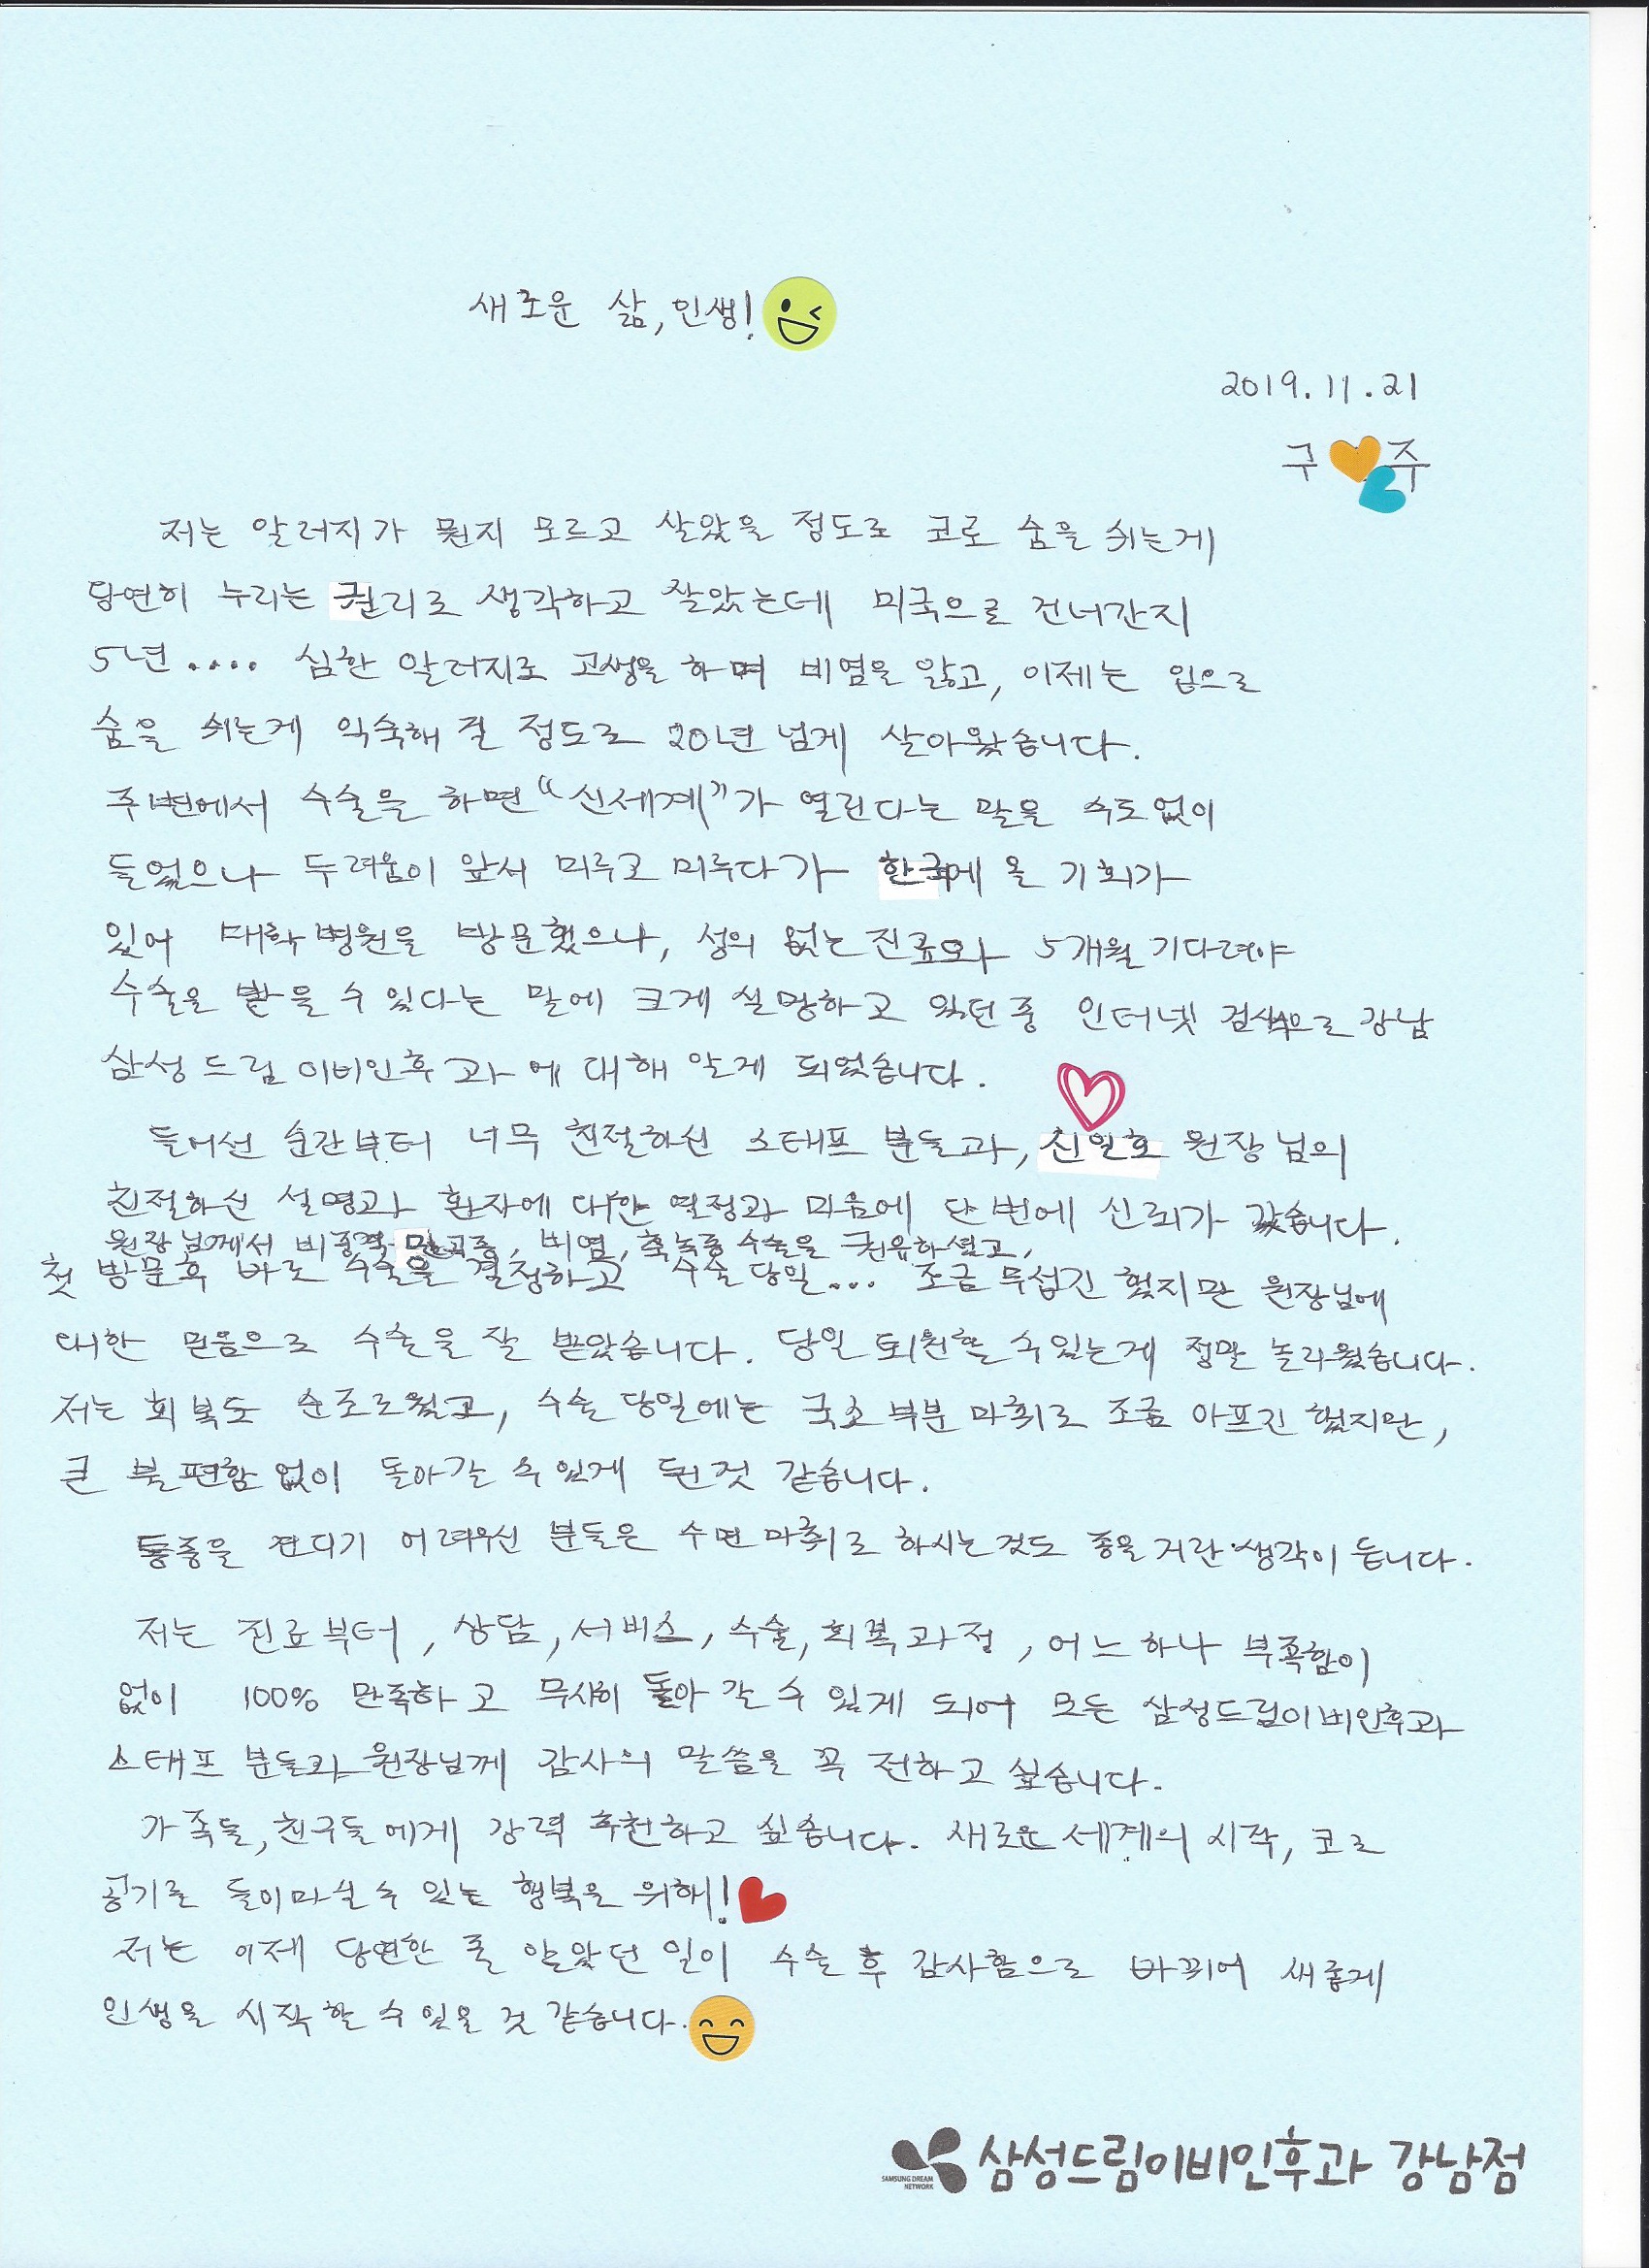 새로운 삶, 인생!
2019. 11. 21
구 주
저는 알러지가 뭔지 모르고 살았을 정도로 코로 숨을 쉬는게
당연히 누리는 권리로 생각하고 살았는데 미국으로 건너간지
5년.... 심한 알러지로 고생을 하며 비염을 앓고, 이제는 입으로
숨을 쉬는게 익숙해 질 정도로 20년 넘게 살아왔습니다.
주변에서 수술을 하면 "신세계"가 열린다는 말을 수도없이
들었으나 두려움이 앞서 미루고 미루다가 한국에 올 기회가
있어 대학병원을 방문했으나, 성의 없는 진료와 5개월 기다려야
수술을 받을 수 있다는 말에 크게 실망하고 있던 중 인터넷 검색으로 강남
삼성드림이비인후과에 대해 알게 되었습니다.
들어선 순간부터 너무 친절하신 스태프 분들과, 신일호 원장님의
친절하신 설명과 환자에 대한 열정과 마음에 단번에 신뢰가 갔습니다.
원장님께서 비중격 만곡증, 비염, 축농증 수술을 권유하셨고,
첫 방문후 바로 수술을 결정하고 수술 당일... 조금 무섭긴 했지만 원장님에
대한 믿음으로 수술을 잘 받았습니다. 당일 퇴원할 수있는게 정말 놀라웠습니다.
저는 회복도 순조로웠고, 수술 당일에는 국소부분 마취로 조금 아프긴 했지만,
큰 불편함 없이 돌아갈 수있게 된것 같습니다.
통증을 견디기 어려우신 분들은 수면 마취로 하시는것도 좋을거란 생각이 듭니다.
저는 진료부터, 상담, 서비스, 수술, 회복과정, 어느하나 부족함이
없이 100% 만족하고 무사히 돌아 갈 수 있게 되어 모든 삼성드림이비인후과
스태프 분들과 원장님께 감사의 말씀을 꼭 전하고 싶습니다.
가족들, 친구들에게 강력 추천하고 싶습니다. 새로운 세계의 시작, 코로
공기를 들이마실 수 있는 행복을 위해!
저는 이제 당연한 줄 알았던 일이 수술 후 감사함으로 바뀌어 새롭게
인생을 시작할 수 있을 것 같습니다.
SAMSUNG DREAM NETWORK 삼성드림이비인후과 강남점